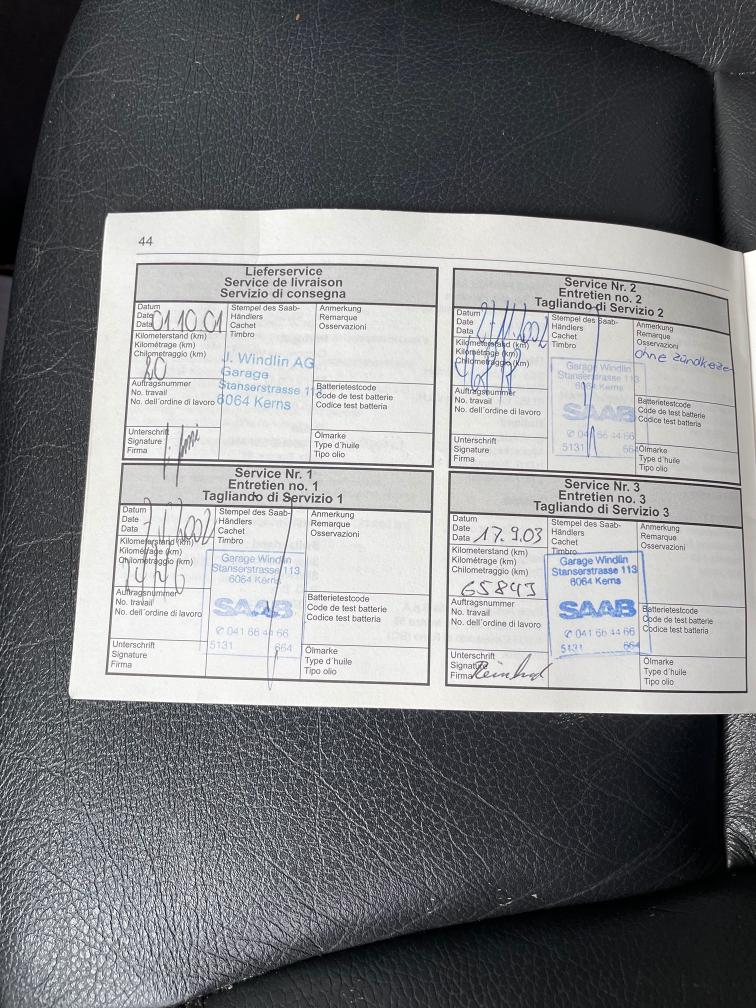 44
Lieferservice
Service de livraison
Servizio di consegna
Datum
Date
Data 01.10.01
Kilometerstand (km)
Kilométrage (km)
Chilometraggio (km)
Auftragsnummer
No. travail
No. dell'ordine di lavoro
Unterschrift
Signature
Firma
Stempel des Saab-
Händlers
Cachet
Timbro
J. Windlin AG
Garage
Stanserstrasse 11
6064 Kerns
Anmerkung
Remarque
Osservazioni
Batterietestcode
Code de test batterie
Codice test batteria
Ölmarke
Type d'huile
Tipo olio
Service Nr. 1
Entretien no. 1
Tagliando di Servizio 1
Datum
Date
Data
Kilometerstand (km)
Kilométrage (km)
Chilometraggio (km)
Auftragsnummer
No. travail
No. dell'ordine di lavoro
Unterschrift
Signature
Firma
Stempel des Saab-
Händlers
Cachet
Timbro
Garage Windlin
Stanserstrasse 113
6064 Kerns
SAAB
✆ 041 66 44 66
5131 664
Anmerkung
Remarque
Osservazioni
Batterietestcode
Code de test batterie
Codice test batteria
Ölmarke
Type d'huile
Tipo olio
Service Nr. 2
Entretien no. 2
Tagliando di Servizio 2
Datum
Date
Data
Kilometerstand (km)
Kilométrage (km)
Chilometraggio (km)
Auftragsnummer
No. travail
No. dell'ordine di lavoro
Unterschrift
Signature
Firma
Stempel des Saab-
Händlers
Cachet
Timbro
Garage Windlin
Stanserstrasse 113
6064 Kerns
SAAB
✆ 041 66 44 66
5131 664
Anmerkung
Remarque
Osservazioni
ohne Zündkerze
Batterietestcode
Code de test batterie
Codice test batteria
Ölmarke
Type d'huile
Tipo olio
Service Nr. 3
Entretien no. 3
Tagliando di Servizio 3
Datum
Date
Data 17.9.03
Kilometerstand (km)
Kilométrage (km)
Chilometraggio (km)
65843
Auftragsnummer
No. travail
No. dell'ordine di lavoro
Unterschrift
Signature
Firma
Stempel des Saab-
Händlers
Cachet
Timbro
Garage Windlin
Stanserstrasse 113
6064 Kerns
SAAB
✆ 041 66 44 66
5131 664
Anmerkung
Remarque
Osservazioni
Batterietestcode
Code de test batterie
Codice test batteria
Ölmarke
Type d'huile
Tipo olio